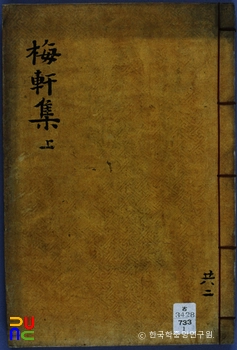 梅軒集
上
共二
3428
733
1
© 한국학중앙연구원